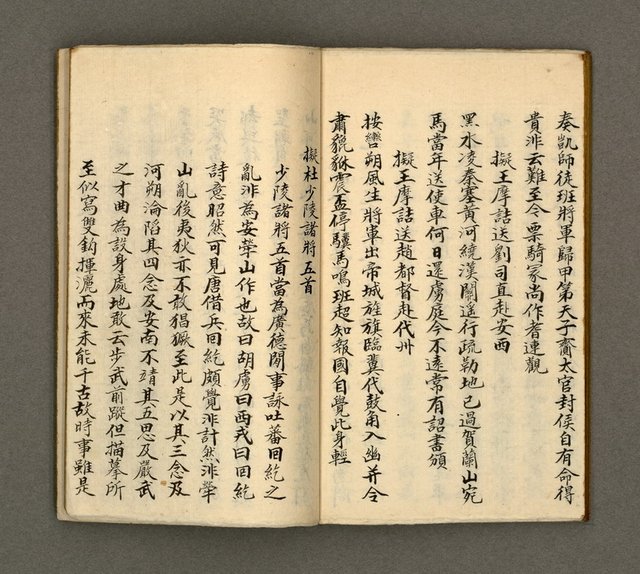 奏凱師徒班將軍歸甲第天子賚太官封侯自有命得
貴洵云難至今票騎冢尚作耆連觀
擬王摩詰送劉司直赴安西
黑水凌秦塞黃河繞漢關遙行疏勒地已過賀蘭山宛
馬當年送使車何日還虜庭今不遠常有詔書頒
擬王摩詰送趙都督赴代州
按轡朔風生將軍出帝城旌旗臨冀代鼓角入幽并令
肅貔貅震盃停驥馬鳴班超知報國自覺此身輕
擬杜少陵諸將五首
少陵諸將五首當為廣德間事詠吐蕃回紇之
亂洵為安犖山作也故曰胡虜曰西戎曰回紇
詩意昭然可見唐借兵回紇頗覺非計然非犖
山亂後夷狄亦不敢猖獗至此是以其三念及
河朔淪陷其四念及安南不靖其五思及嚴武
之才曲為設身處地敢云步武前蹤但描摹所
至似寫雙鈎揮灑而來未能千古故時事雖是